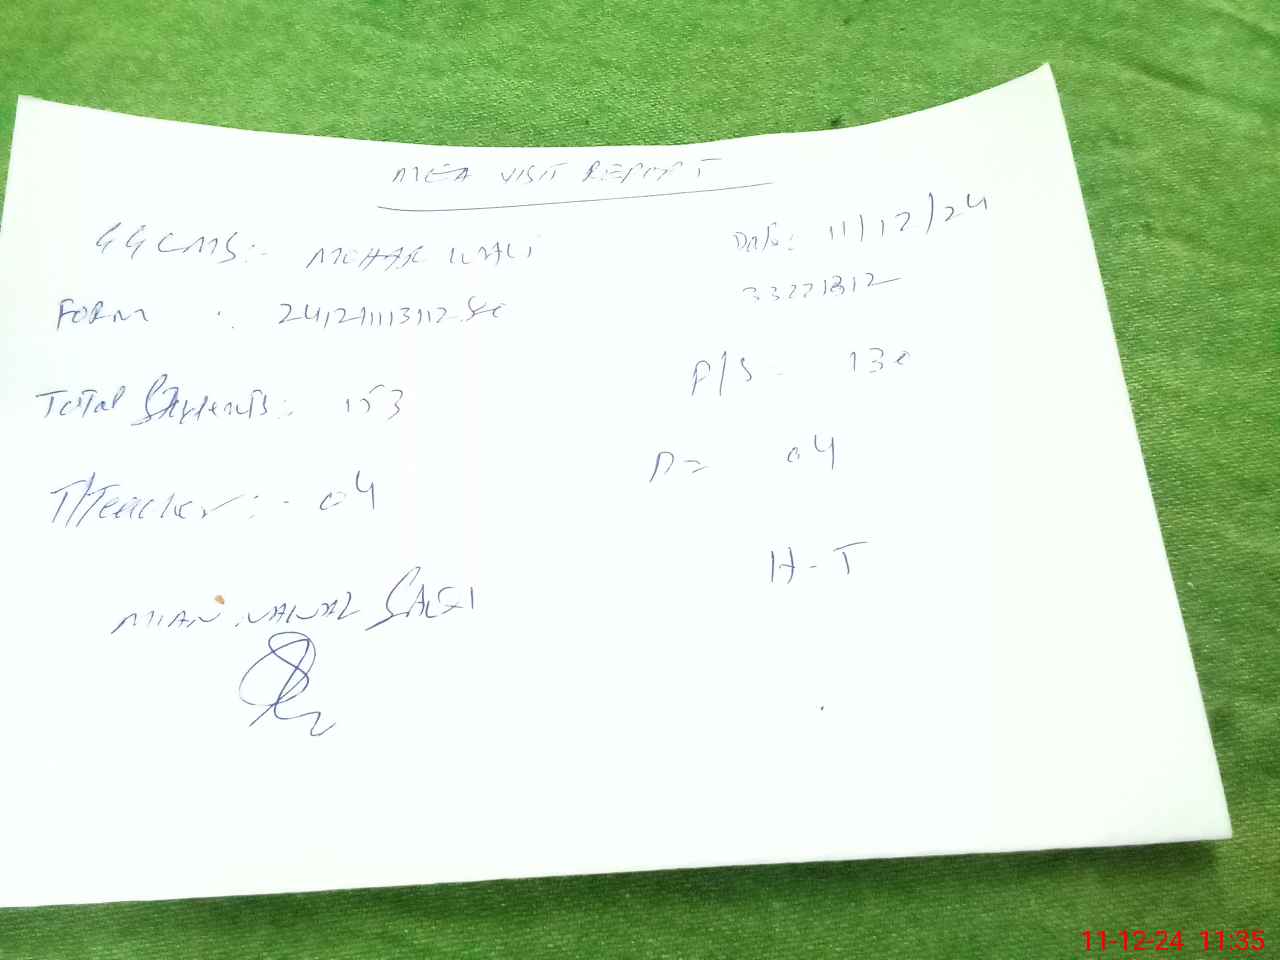 MEA VISIT REPORT
GGCMS:- MOHAR WALI Date: 11/12/24
FORM : 33221312
Total Students: 153 P/S - 130
T/Teacher:- 04 P= 04
H-T
MIAN
11-12-24 11:35